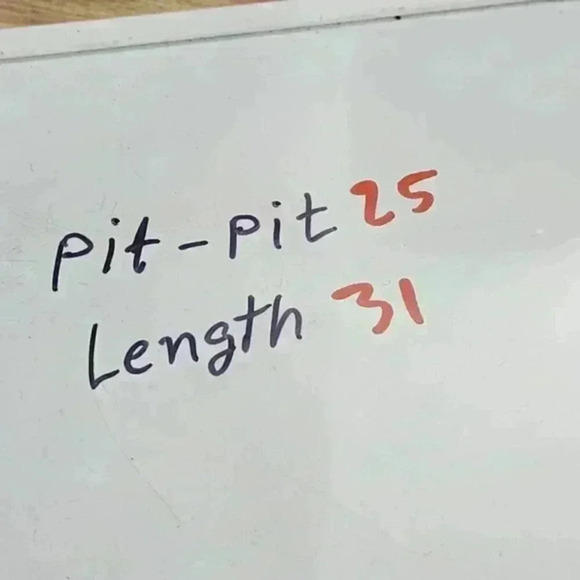 pit-pit 25
Length 31